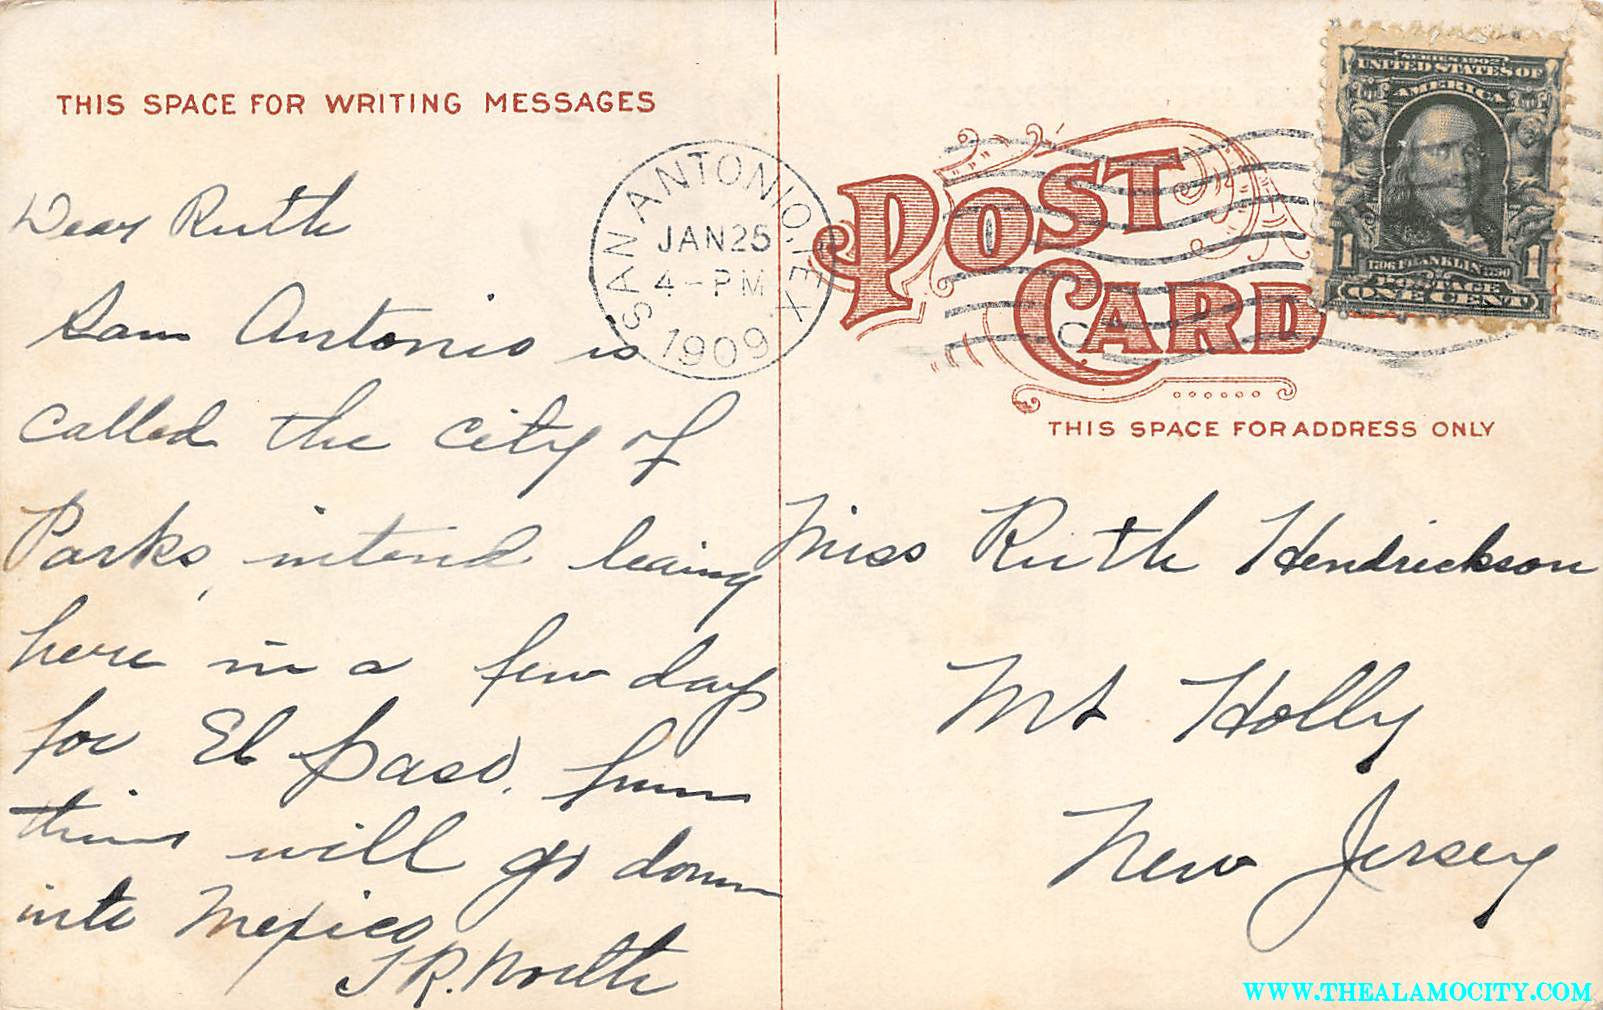 THIS SPACE FOR WRITING MESSAGES
Dear Ruth
San Antonio is
called the City of
Parks, intend leaving
here in a few days
for El Paso, from
thins will go down
into Mexico
J R. North
SAN ANTONIO, TEX.
JAN 25
4-PM
1909
POST
CARD
THIS SPACE FOR ADDRESS ONLY
SERIES 1902
UNITED STATES OF
AMERICA
1 1706 FRANKLIN 1790 1
POSTAGE
ONE CENT
Miss Ruth Hendrickson
Mt Holly
New Jersey
WWW.THEALAMOCITY.COM